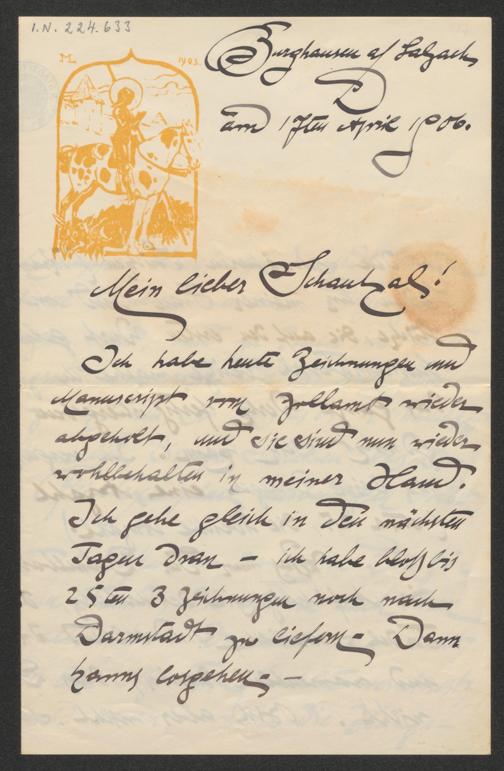 I.N. 224.633
ML 1903
Burghausen a/ Salzach
am 17ten April 1906.
Mein lieber Schaukal!
Ich habe heute Zeichnungen und
Manuscript vom Zollamt wieder
abgeholt, und sie sind nun wieder
wohlbehalten in meiner Hand.
Ich gehe gleich in den nächsten
Tagen dran – ich habe bloß bis
25ten 3 Zeichnungen noch nach
Darmstadt zu liefern – Dann
kanns losgehen. –